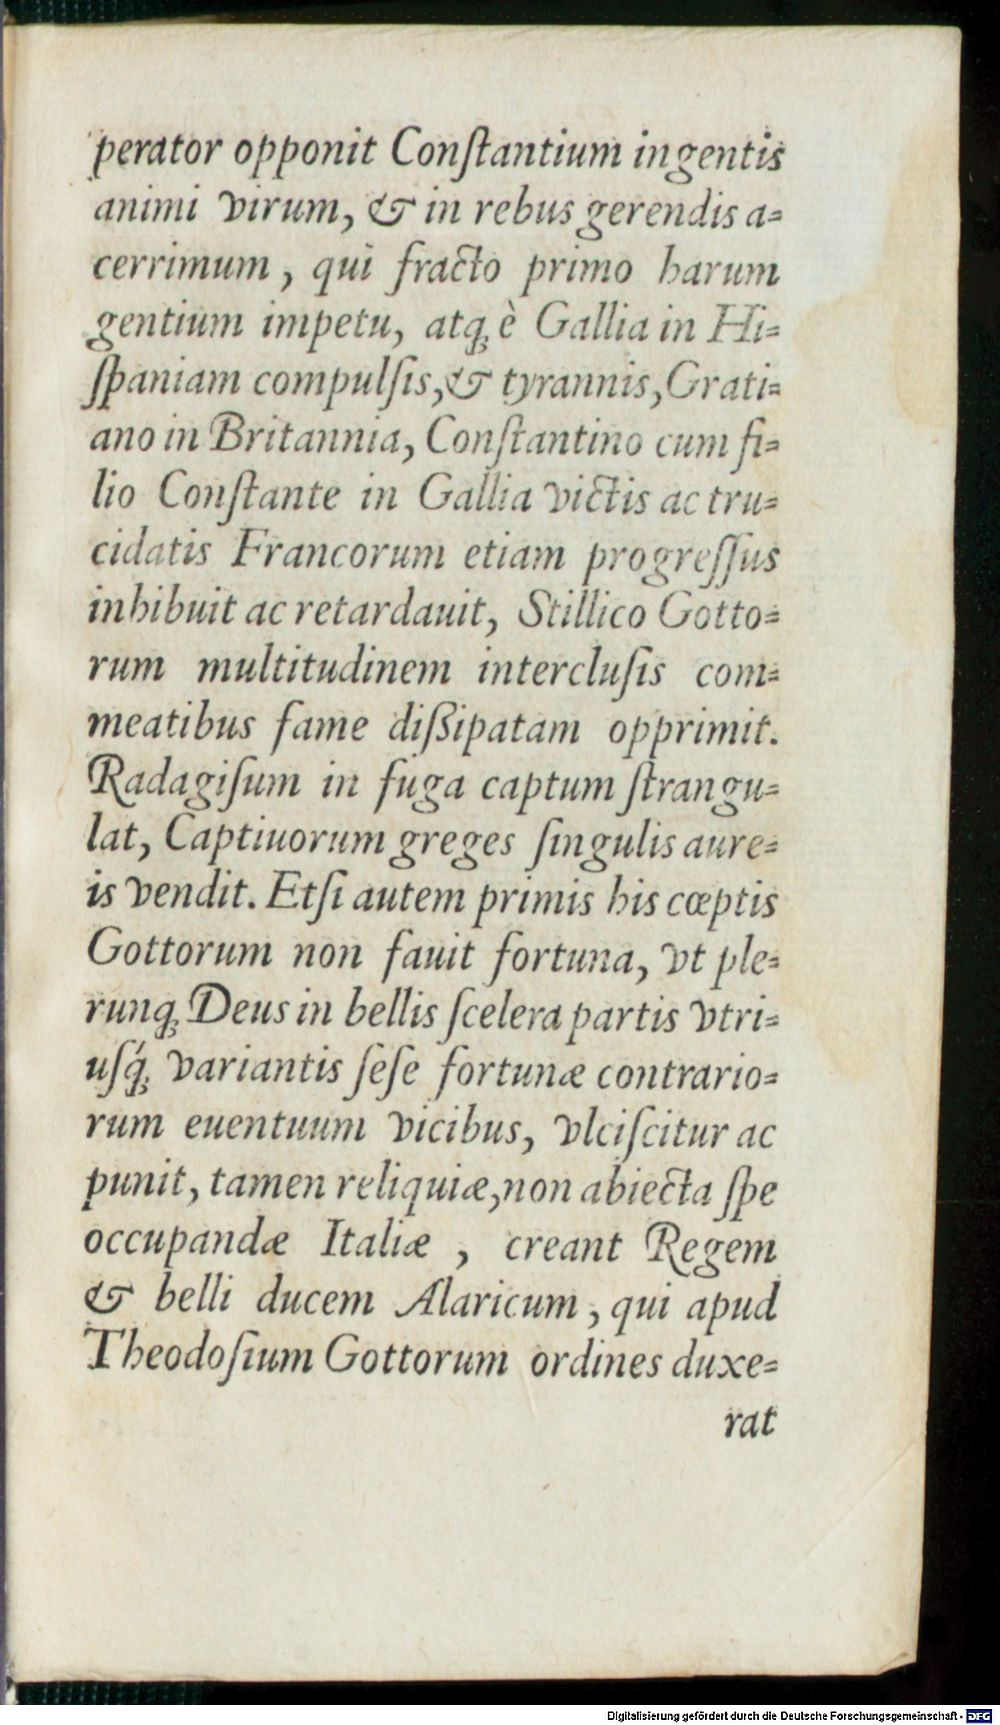 perator opponit Conſtantium ingentis
animi virum, & in rebus gerendis a⸗
cerrimum, qui fracto primo harum
gentium impetu, atq; è Gallia in Hi⸗
ſpaniam compulſis, & tyrannis, Grati⸗
ano in Britannia, Conſtantino cum fi⸗
lio Conſtante in Gallia victis ac tru⸗
cidatis Francorum etiam progreſſus
inhibuit ac retardauit, Stillico Gotto⸗
rum multitudinem intercluſis com⸗
meatibus fame dißipatam opprimit.
Radagiſum in fuga captum ſtrangu⸗
lat, Captiuorum greges ſingulis aure⸗
is vendit. Etſi autem primis his cœptis
Gottorum non fauit fortuna, vt ple⸗
runq; Deus in bellis ſcelera partis vtri⸗
uſq́; variantis ſeſe fortunæ contrario⸗
rum euentuum vicibus, vlciſcitur ac
punit, tamen reliquiæ, non abiecta ſpe
occupandæ Italiæ, creant Regem
& belli ducem Alaricum, qui apud
Theodoſium Gottorum ordines duxe⸗
rat
Digitalisierung gefördert durch die Deutsche Forschungsgemeinschaft - DFG